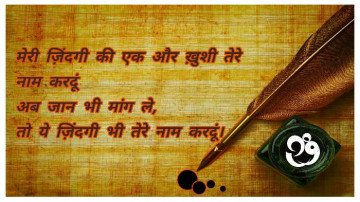 मेरी ज़िंदगी की एक और ख़ुशी तेरे
नाम करदूं
अब जान भी मांग ले,
तो ये ज़िंदगी भी तेरे नाम करदूं!